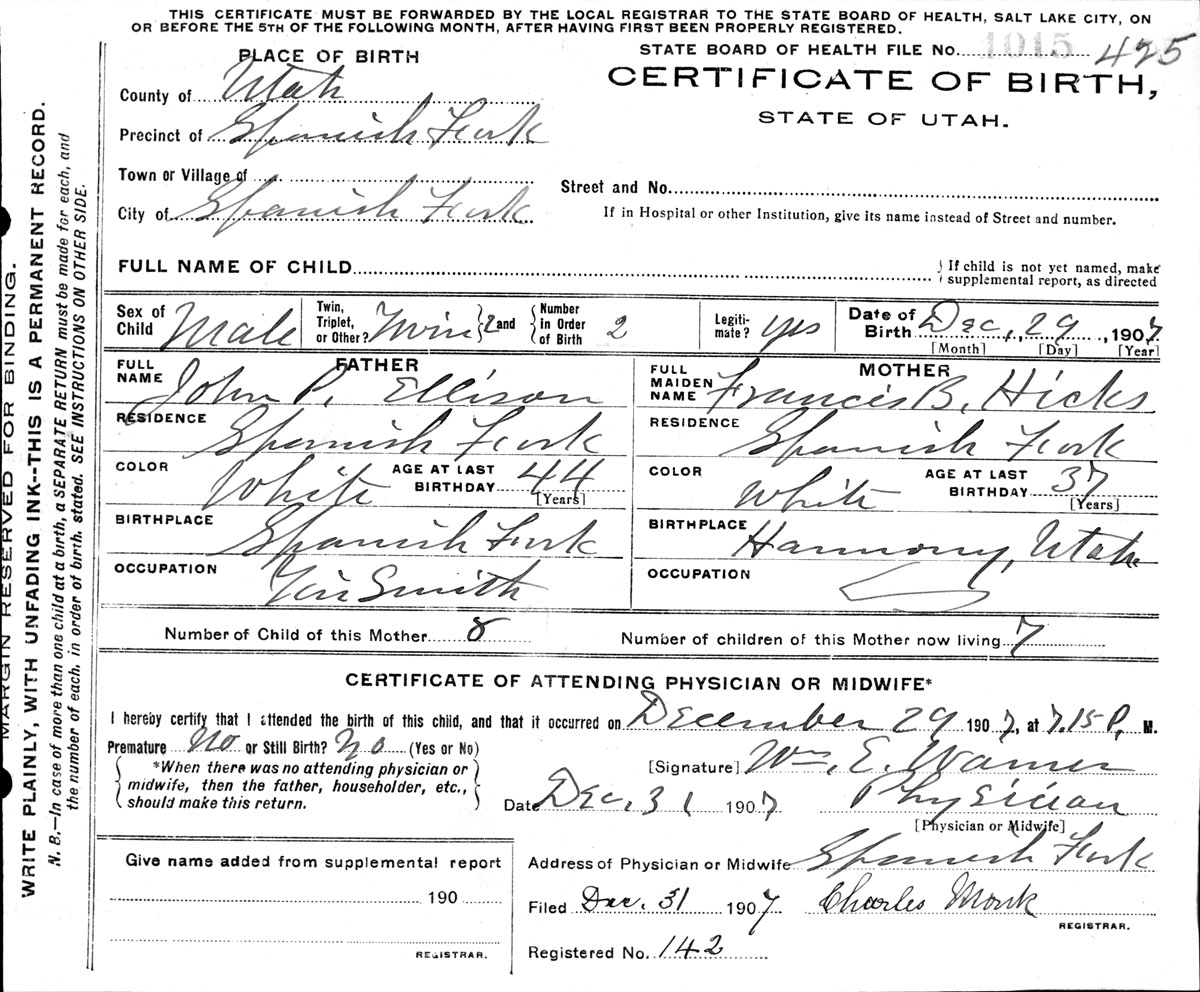 THIS CERTIFICATE MUST BE FORWARDED BY THE LOCAL REGISTRAR TO THE STATE BOARD OF HEALTH, SALT LAKE CITY, ON
OR BEFORE THE 5TH OF THE FOLLOWING MONTH, AFTER HAVING FIRST BEEN PROPERLY REGISTERED.
PLACE OF BIRTH
STATE BOARD OF HEALTH FILE No. 1015 425
CERTIFICATE OF BIRTH,
STATE OF UTAH.
County of Utah
Precinct of Spanish Fork
Town or Village of
City of Spanish Fork
Street and No.
If in Hospital or other Institution, give its name instead of Street and number.
FULL NAME OF CHILD
If child is not yet named, make
supplemental report, as directed
Sex of
Child Male
Twin,
Triplet,
or Other? Twin 2 and
Number
in Order
of Birth 2
Legiti-
mate? yes
Date of
Birth Dec, 29, 1907
[Month] [Day] [Year]
FATHER
FULL
NAME John P. Ellison
RESIDENCE Spanish Fork
COLOR White AGE AT LAST
BIRTHDAY 44
[Years]
BIRTHPLACE Spanish Fork
OCCUPATION Tin Smith
MOTHER
FULL
MAIDEN
NAME Francis B. Hicks
RESIDENCE Spanish Fork
COLOR White AGE AT LAST
BIRTHDAY 37
[Years]
BIRTHPLACE Harmony, Utah
OCCUPATION
Number of Child of this Mother 8
Number of children of this Mother now living 7
CERTIFICATE OF ATTENDING PHYSICIAN OR MIDWIFE*
I hereby certify that I attended the birth of this child, and that it occurred on December 29 1907, at 7.15 P. M.
Premature No or Still Birth? No (Yes or No)
*When there was no attending physician or
midwife, then the father, householder, etc.,
should make this return.
[Signature] Wm. E. Warner
Date Dec. 31 1907 Physician
[Physician or Midwife]
Give name added from supplemental report
190
REGISTRAR.
Address of Physician or Midwife Spanish Fork
Filed Dec. 31 1907 Charles Monk
REGISTRAR.
Registered No. 142
MARGIN RESERVED FOR BINDING.
WRITE PLAINLY, WITH UNFADING INK--THIS IS A PERMANENT RECORD.
N. B.—In case of more than one child at a birth, a SEPARATE RETURN must be made for each, and
the number of each, in order of birth, stated. SEE INSTRUCTIONS ON OTHER SIDE.